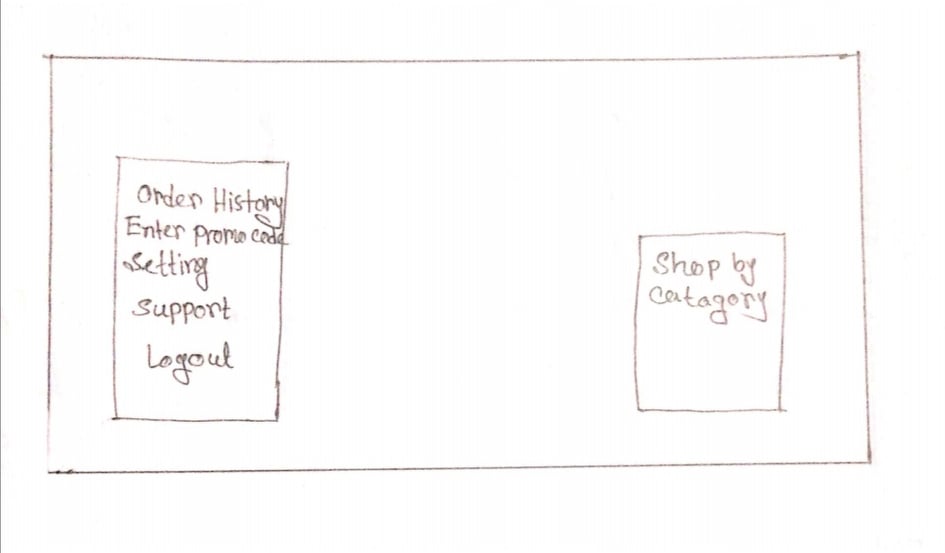 Order History
Enter promo code
Setting
Support
Logout
Shop by
Catagory